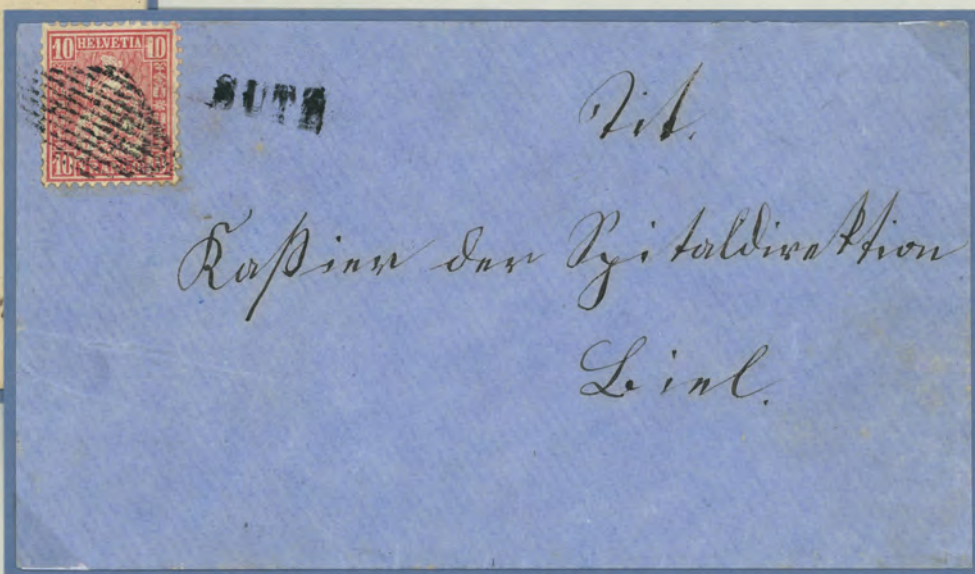 10 HELVETIA 10
Tit.
Kaßier der Spitaldirektion
Biel.
10